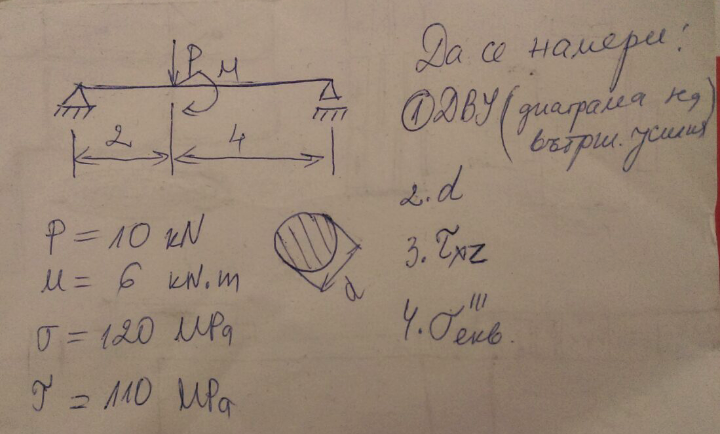 P M
2 4
P = 10 kN
M = 6 kN.m
σ = 120 MPa
τ = 110 MPa
d
Да се намери:
① ДВУ (диаграма на
вътрш. усилия)
2. d
3. τxz
4. σ экв. III